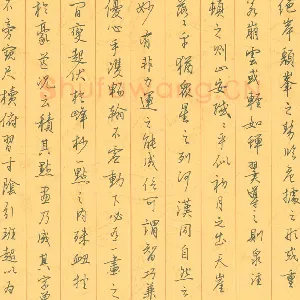 絕岸頹峯之勢臨危據槁之形或重
若崩雲或輕如蟬翼導之則泉注
頓之則山安纖纖乎似初月之出天崖
落落乎猶眾星之列河漢同自然之
妙有非力運之能成信可謂智巧兼
優心手雙暢翰不虛動下必有由一畫之
間變起伏於峰杪一點之內殊衄挫
於毫芒況云積其點畫乃成其字曾
不旁窺尺牘俯習寸陰引班超以為
Shufawang.cn